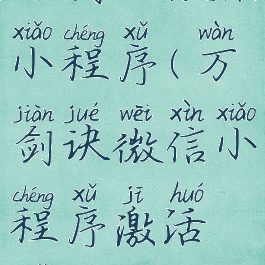 xiǎo chéng xǔ wàn
小程序(万
jiàn jué wēi xìn xiǎo
剑诀微信小
chéng xǔ jī huó
程序激活